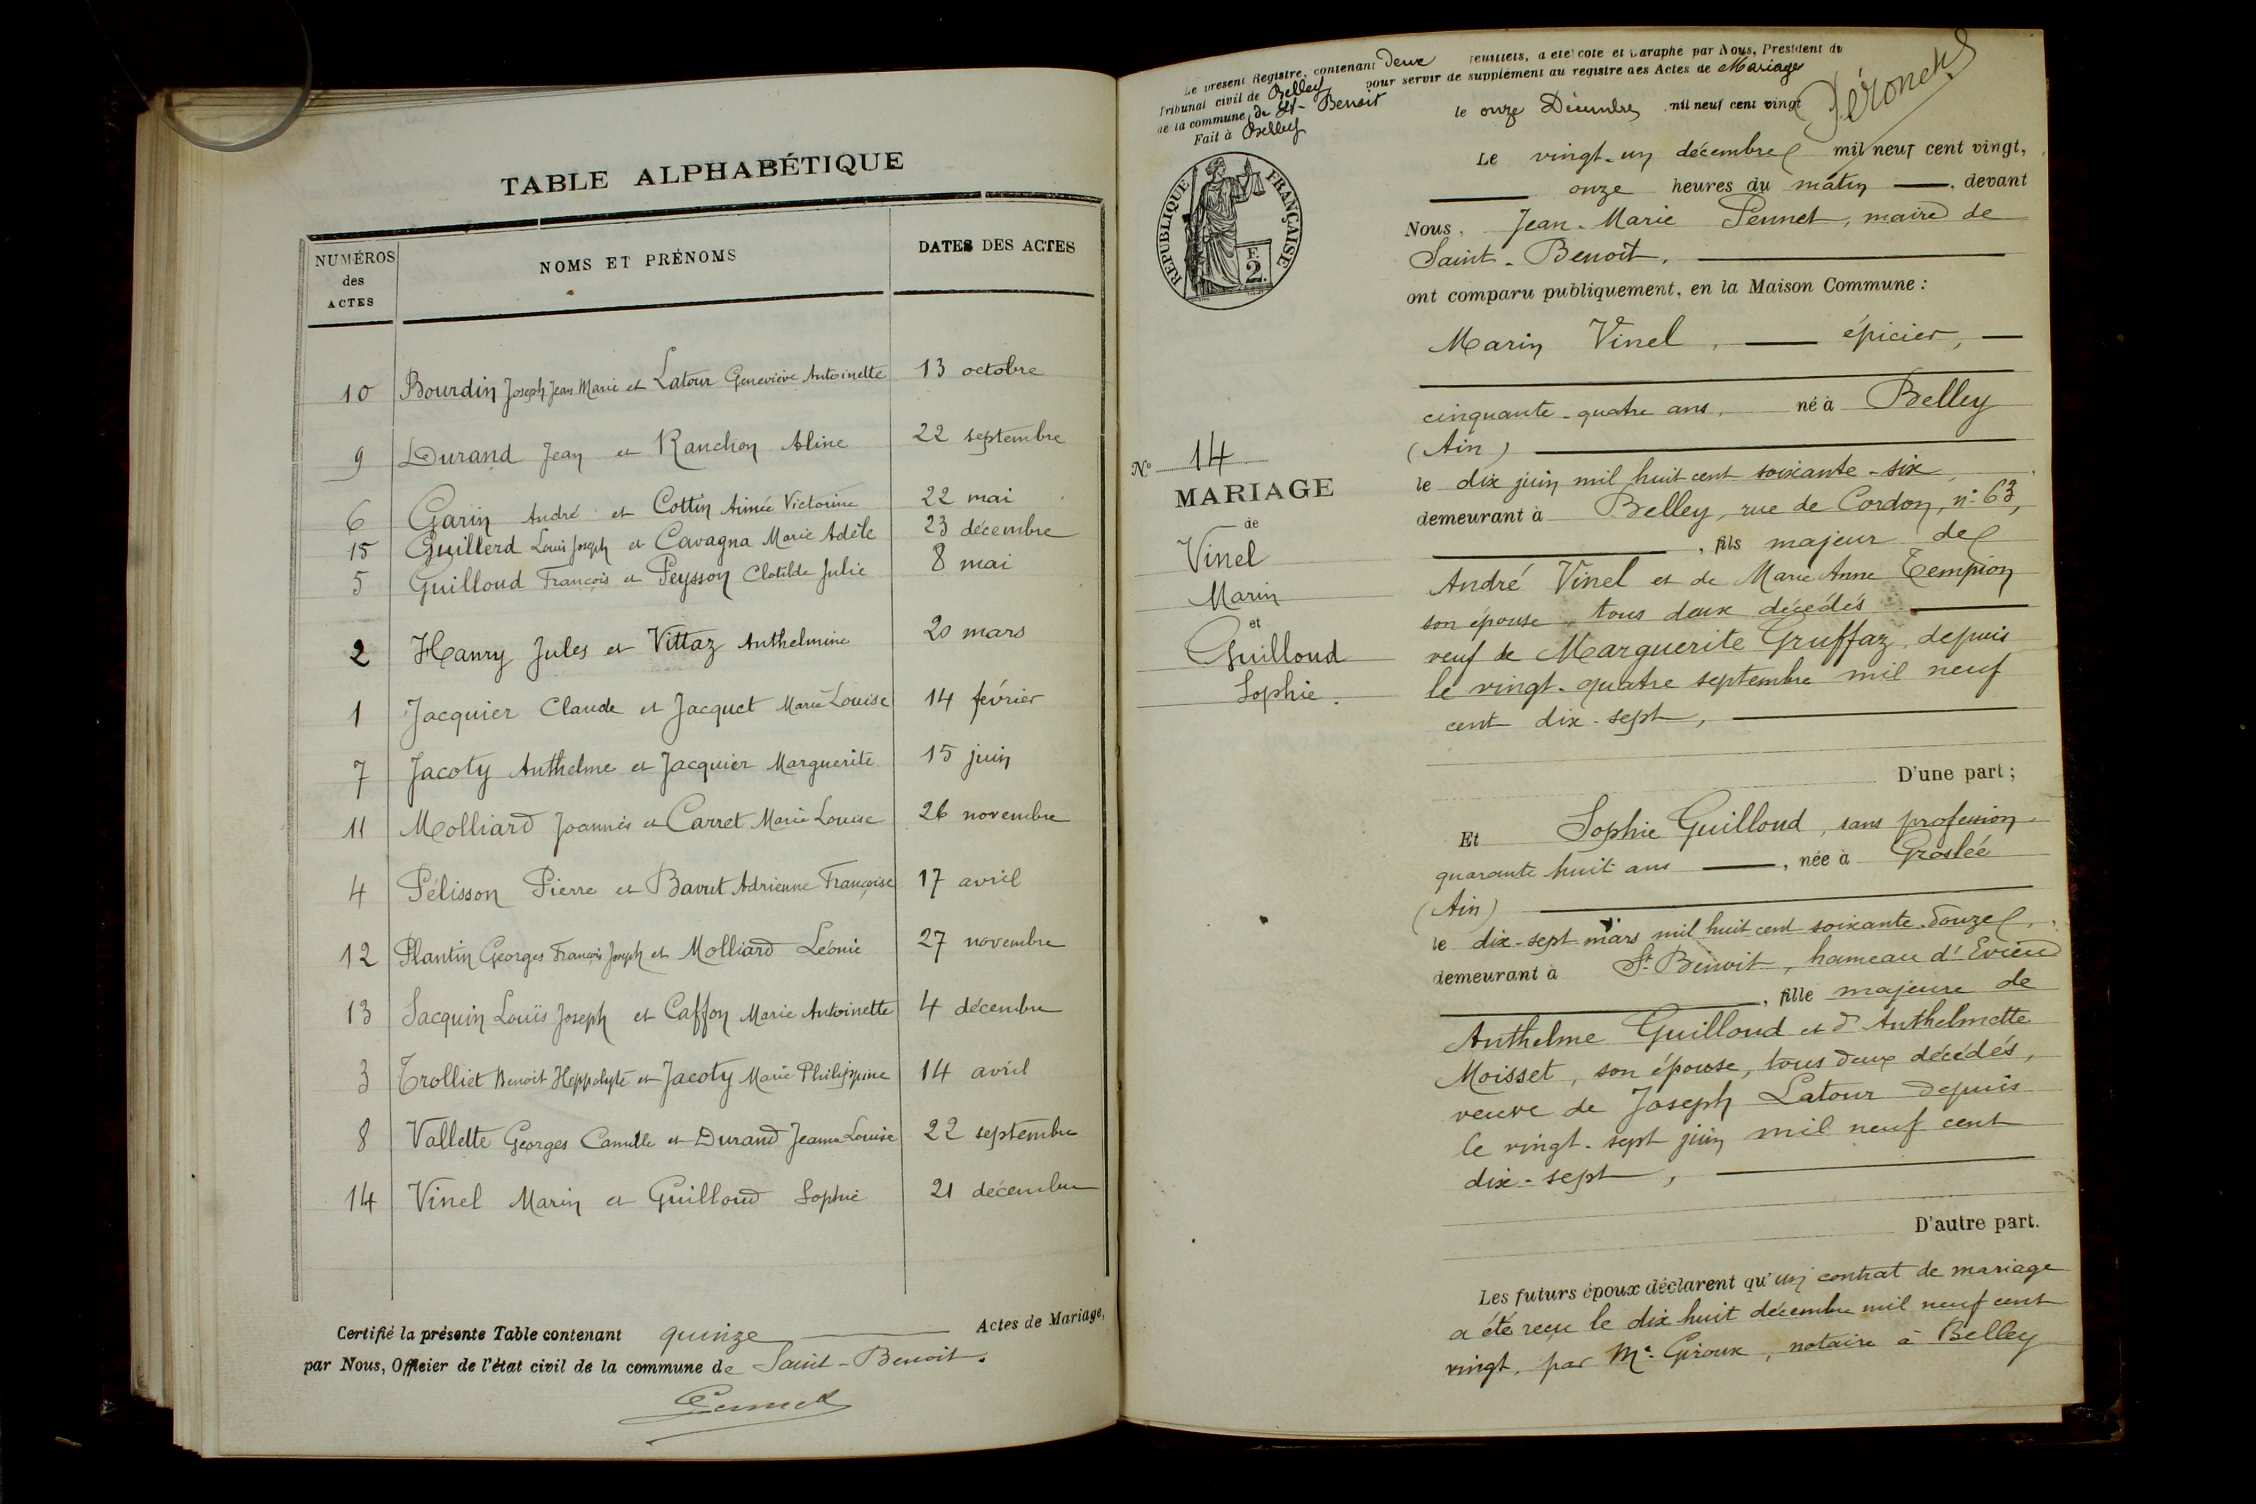 TABLE ALPHABÉTIQUE
NUMÉROS des ACTES
NOMS ET PRÉNOMS
DATES DES ACTES
10 Bourdin Joseph Jean Marie et Latour Geneviève Antoinette 13 octobre
9 Durand Jean et Ranchon Aline 22 septembre
6 Garin André et Cottin Aimée Victorine 22 mai
15 Guillerd Louis Joseph et Cavagna Marie Adèle 23 décembre
5 Guilloud François et Peysson Clotilde Julie 8 mai
2 Hanry Jules et Vittaz Anthelmine 20 mars
1 Jacquier Claude et Jacquet Marie Louise 14 février
7 Jacoty Anthelme et Jacquier Marguerite 15 juin
11 Molliard Joannès et Carret Marie Louise 26 novembre
4 Pélisson Pierre et Bavut Adrienne Françoise 17 avril
12 Plantin Georges François Joseph et Molliard Léonie 27 novembre
13 Sacquin Louis Joseph et Caffon Marie Antoinette 4 décembre
3 Trolliet Benoit Heppolyte et Jacoty Marie Philippine 14 avril
8 Vallette Georges Camille et Durand Jeanne Louise 22 septembre
14 Vinel Marin et Guilloud Sophie 21 décembre
Certifié la présente Table contenant quinze Actes de Mariage,
par Nous, Officier de l'état civil de la commune de Saint-Benoit.
Pennet
Le présent Registre, contenant Deux feuillets, a été coté et paraphé par Nous, Président du
Tribunal civil de Belley pour servir de supplément au registre des Actes de Mariage
de la commune de St-Benoit
Fait à Belley le onze Décembre mil neuf cent vingt
Péronet
RÉPUBLIQUE FRANÇAISE
F.
2.
Le vingt-un décembre mil neuf cent vingt,
onze heures du matin, devant
Nous, Jean-Marie Pennet, maire de
Saint-Benoît,
ont comparu publiquement, en la Maison Commune :
Marin Vinel, épicier,
cinquante-quatre ans, né à Belley
(Ain)
le dix juin mil huit cent soixante-six
demeurant à Belley, rue de Cordon, n° 63,
, fils majeur de
André Vinel et de Marie Anne Tempion
son épouse, tous deux décédés
veuf de Marguerite Gruffaz, depuis
le vingt-quatre septembre mil neuf
cent dix-sept,
D'une part ;
N° 14
MARIAGE
de
Vinel
Marin
et
Guilloud
Sophie.
Et Sophie Guilloud, sans profession
quarante huit ans, née à Groslée
(Ain)
le dix-sept mars mil huit cent soixante-douze,
demeurant à St Benoit, hameau d'Evieu
, fille majeure de
Anthelme Guilloud et d'Anthelmette
Moisset, son épouse, tous deux décédés,
veuve de Joseph Latour depuis
le vingt-sept juin mil neuf cent
dix-sept,
D'autre part.
Les futurs époux déclarent qu'un contrat de mariage
a été reçu le dix huit décembre mil neuf cent
vingt, par Me Giroux, notaire à Belley